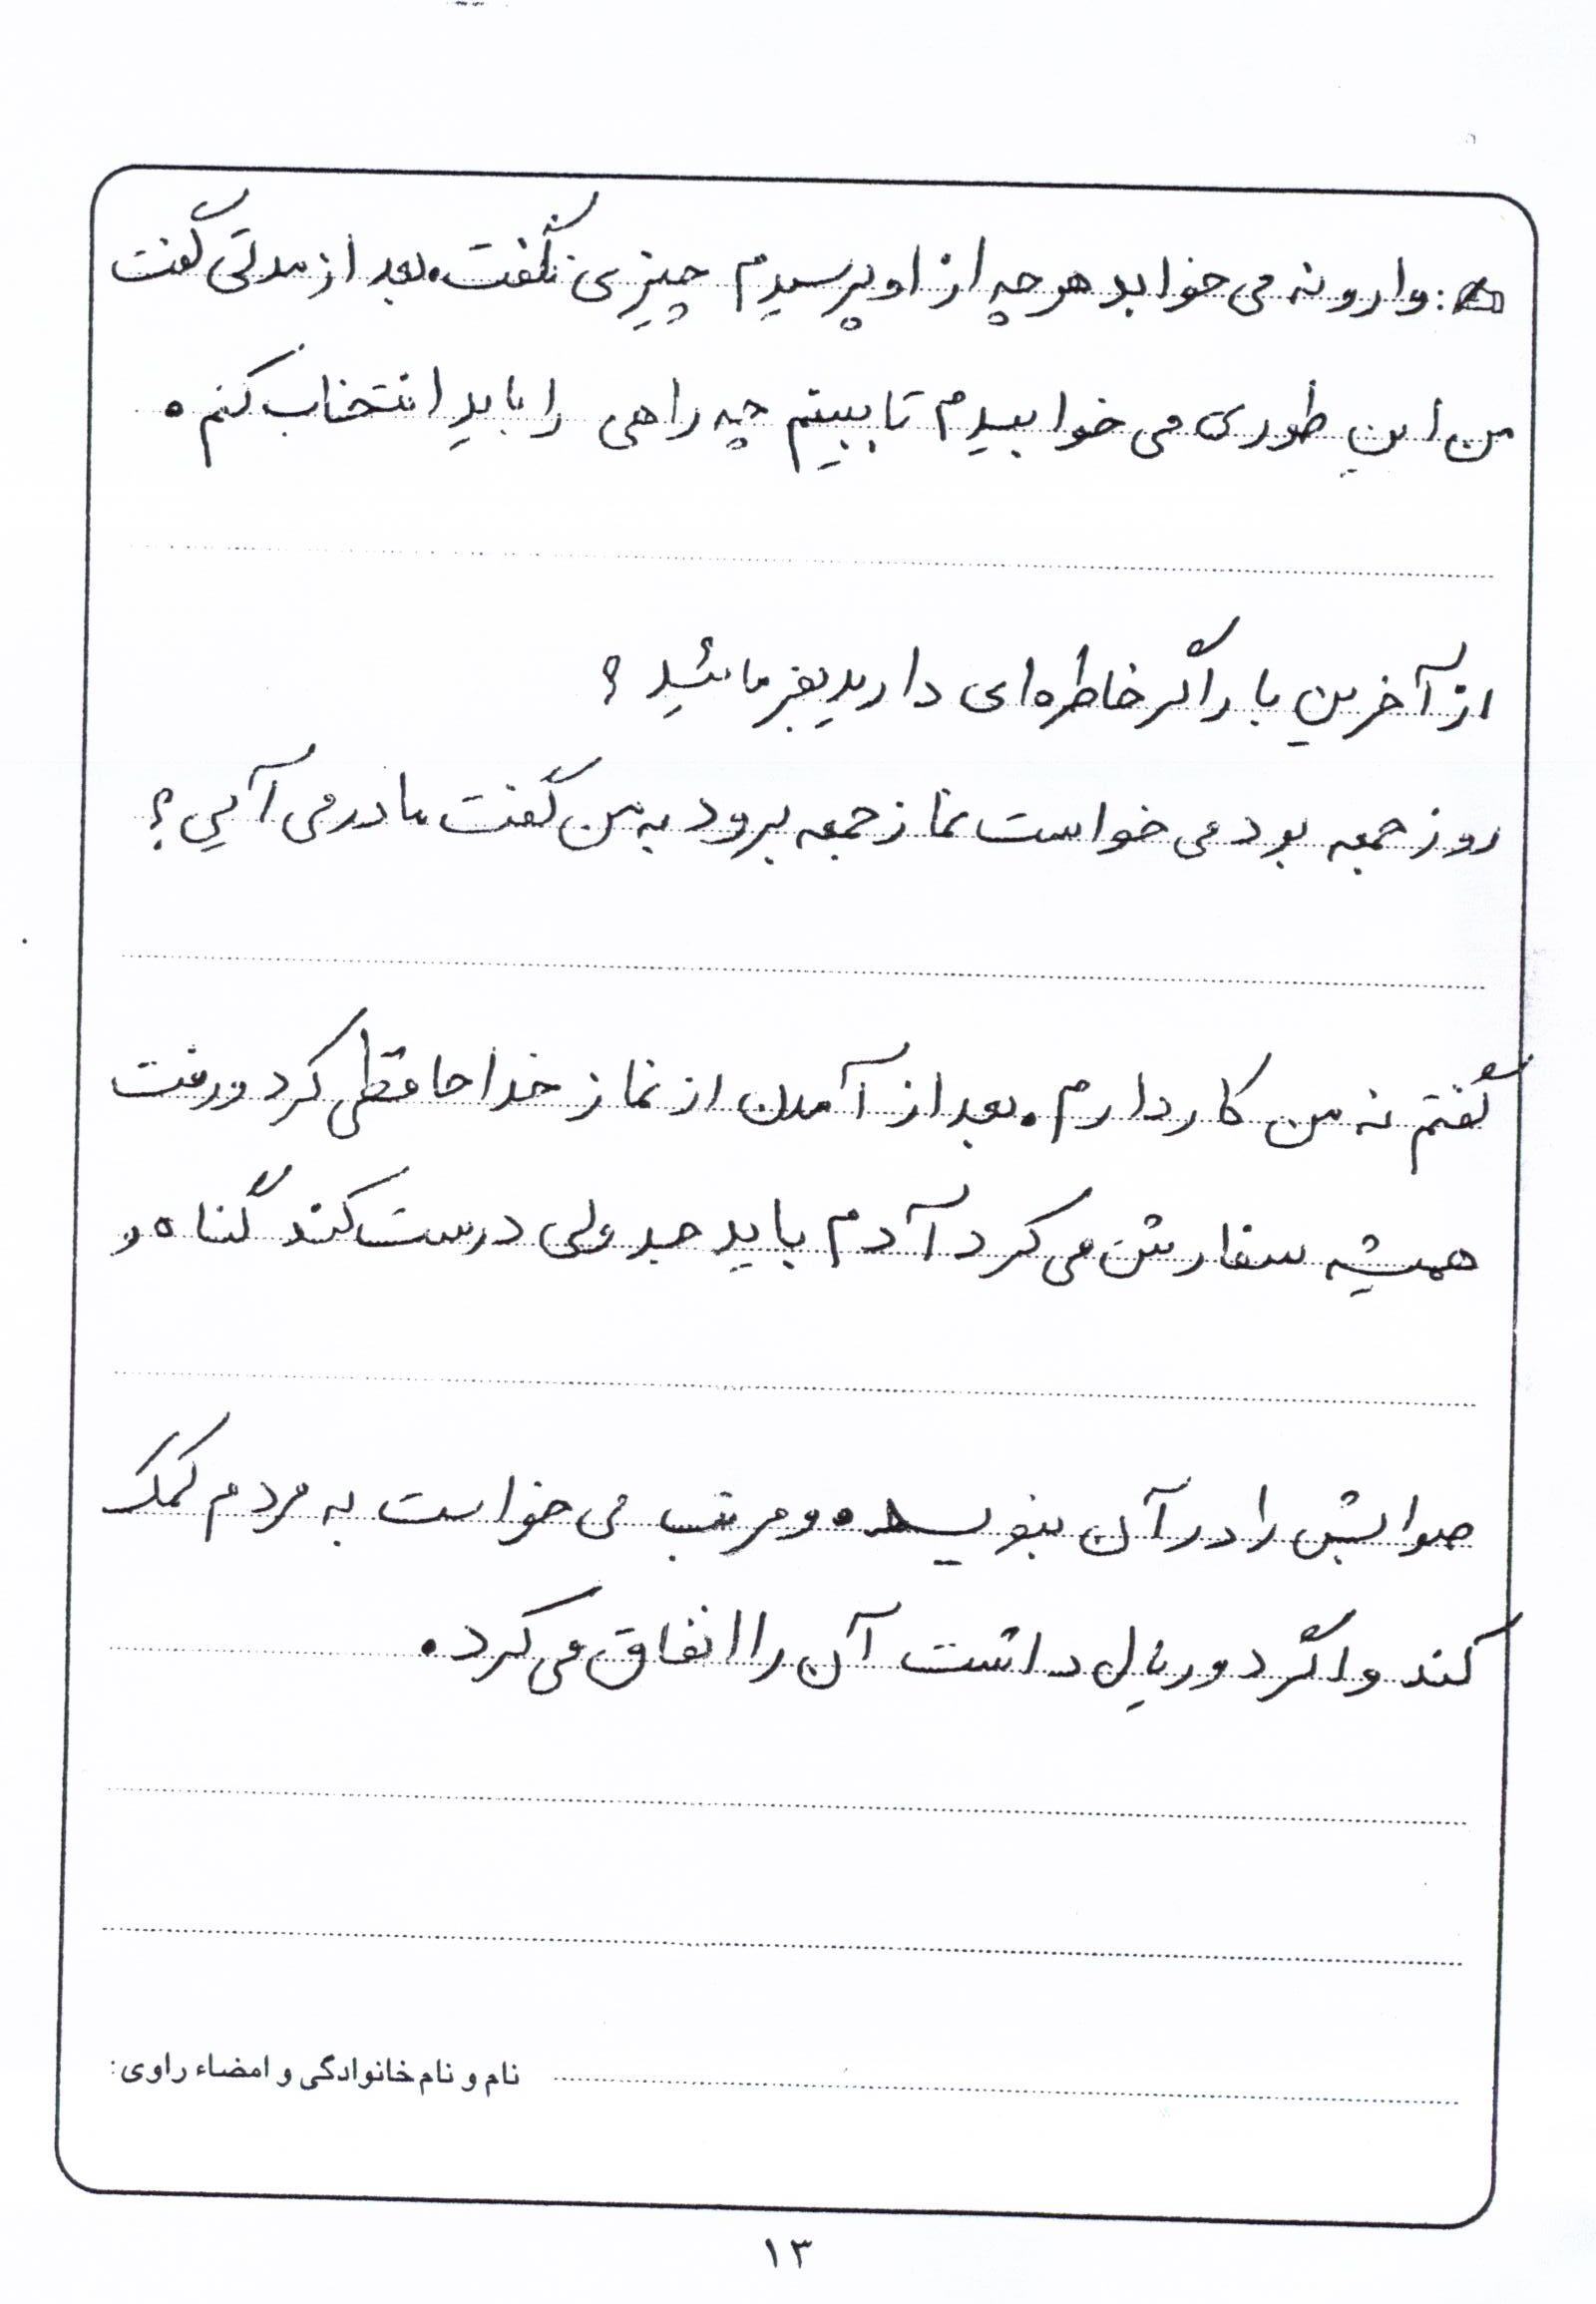 : وارونه می خوابد هرچه از او پرسیدم چیزی نگفت. بعد از مدتی گفت
من این طوری می خوابیدم تا ببینم چه راهی را باید انتخاب کنم.
از آخرین بار اگر خاطره ای دارید بفرمائید؟
روز جمعه بود می خواست نماز جمعه برود به من گفت مادر می آیی؟
گفتم نه من کار دارم. بعد از آمدن از نماز خداحافظی کرد و رفت
همیشه سفارش می کرد آدم باید جدولی درست کند گناه و
صوابش را در آن بنویسد. و مرتب می خواست به مردم کمک
کند و اگر دو ریال داشت آن را انفاق می کرد.
نام و نام خانوادگی و امضاء راوی:
۱۳